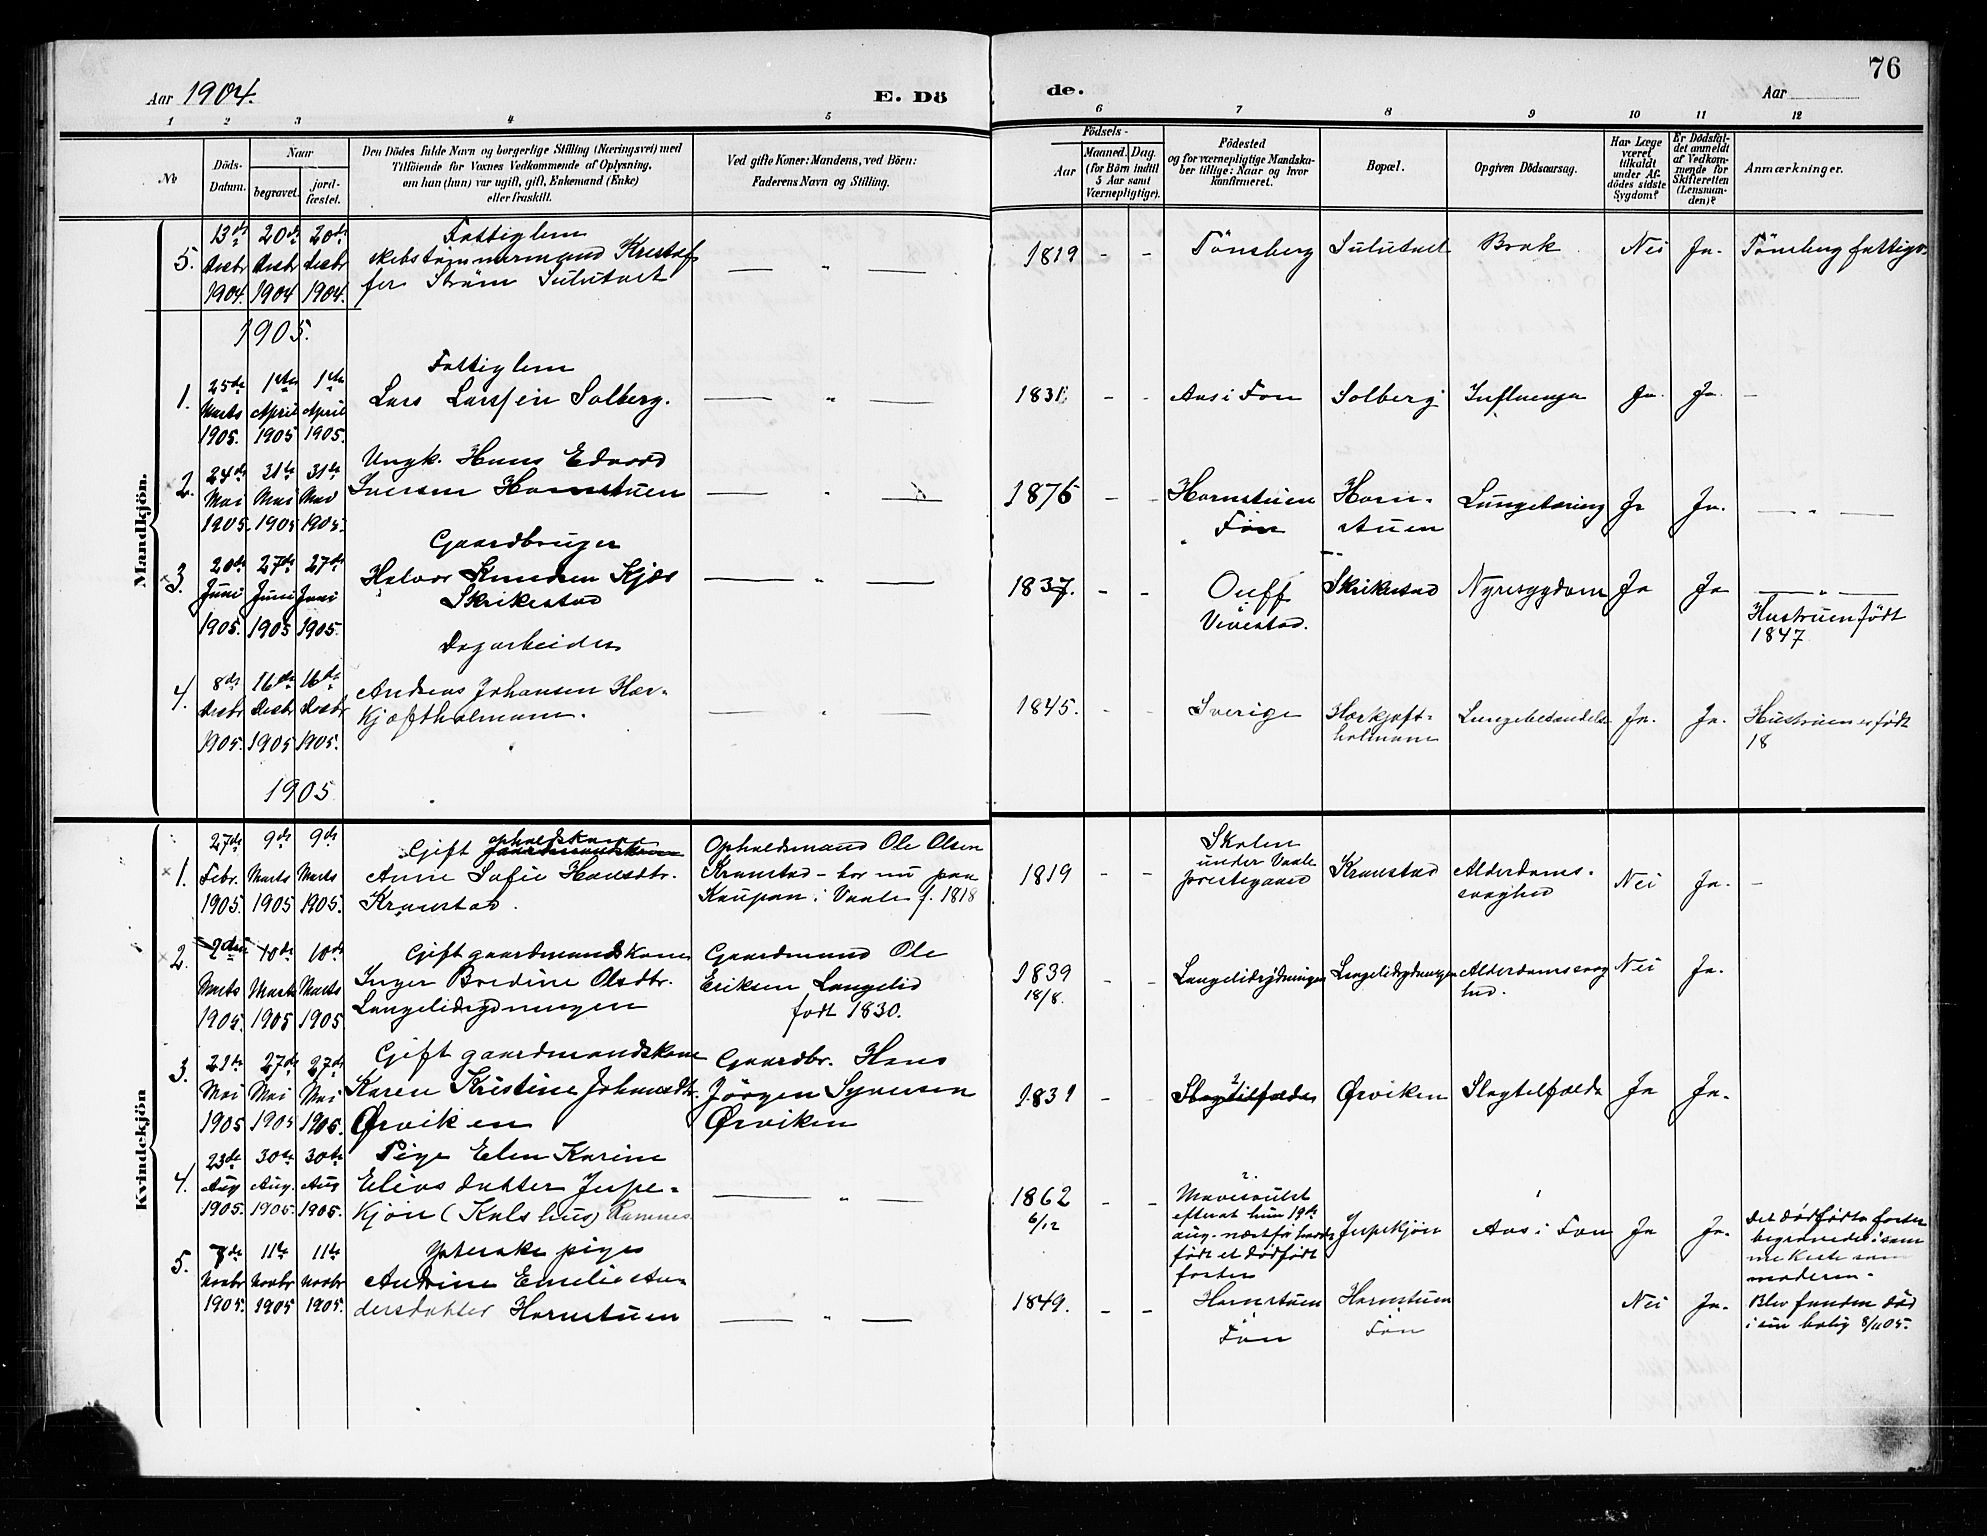 76
Aar 1904.
E. Dö
de.
Aar
1 2 3 4 5
6 7 8 9 10 11 12
No
Döds-
Datum.
Naar
begravet.
jord-
fæstet.
Den Dödes fulde Navn og borgerlige Stilling (Næringsvei) med
Tilföiende for Voxnes Vedkommende af Oplysning,
om han (hun) var ugift, gift, Enkemand (Enke)
eller fraskilt.
Ved gifte Koner: Mandens, ved Börn:
Faderens Navn og Stilling.
Födsels-
Aar
Maaned. Dag.
(for Börn indtil
5 Aar samt
Værnepligtige).
Födested
og for værnepligtige Mandska-
ber tillige: Naar og hvor
konfirmeret.
Bopæl.
Opgiven Dödsaarsag.
Har Læge
været
tilkaldt
under Af-
dödes sidste
Sygdom?
Er Dödsfal-
det anmeldt
af Vedkom-
mende for
Skifteretten
(Lensman-
den)?
Anmærkninger.
Mandkjön.
5.
13de
Desbr
1904.
20de
Desbr
1904
20de
Desbr
1904.
Fattiglem
skibstömmermand Kristof
fer Ström
1819 - -
Tönsberg
Brok
Nei
Ja.
Tönsberg fattigv.
1905.
1.
25de
Marts
1905.
1ste
April
1905
1ste
April
1905.
Fattiglem
Lars Larssen Solberg.
1831 - -
Aas i Fon
Solberg
Influenza
Ja.
Ja.
-
2.
24de
Mai
1905.
31te
Mai
1905
31te
Mai
1905.
Ungk. Hans Edvard
Iversen Hornstuen
1876 - -
Hornstuen
Fön
Horn-
stuen
Lungetæring
Ja
Ja.
3.
20de
Juni
1905.
27de
Juni
1905
27de
Juni
1905.
Gaardbruger
Halvor Knudsen Kjær
Skrikestad
1837. - -
Vivestad.
Skrikestad
Nyresygdom
Ja
Ja
Hustruen født
1847
4.
8de
Desbr
1905.
16de
Desbr
1905
16de
Desbr
1905.
Dagarbeider
Andreas Johansen Hær-
kjøftholmann.
1845. - -
Sverige
Hærkjøft-
holmann
Lungebetændelse
Ja.
Ja.
Hustruen er født
18
1905
Kvindekjön
1.
27de
Febr.
1905.
9de
Marts
1905
9de
Marts
1905.
Gift opholdskone
Anne Sofie Hansdtr.
Kranstad.
Opholdsmand Ole Olsen
Kranstad - bor nu paa
Kaupan i Vaale f. 1818
1819 - -
Skolen
under Vaale
prestegaard
Kranstad
Alderdoms-
svaghed
Nei
Ja.
-
2.
2den
Marts
1905.
10de
Marts
1905
10de
Marts
1905
Gift gaardmandskone
Inger Bredine Olsdtr.
Langelidrydningen
Gaardmand Ole
Eriksen Langelid
født 1830.
1839
18/8. - -
Langelidrydningen
Langelidrydningen
Alderdomssvag
hed.
Nei
Ja.
3.
21de
Mai
1905
27de
Mai
1905
27de
Mai
1905.
Gift gaardmandskone
Karen Kristine Johansdtr.
Ørviken
Gaardbr. Hans
Jörgen Syversen
Ørviken
1831 - -
?
Slagtilfælde
Ørviken
Slagtilfælde
Ja
Ja.
4.
23de
Aug
1905.
30te
Aug.
1905.
30te
Aug
1905.
Pige Elen Karine
Elias datter Jerpe-
kjøn (Kalshus) Ramnes
1862
6/12 - -
?
Mavesvulst
efterat hun 19de
aug. næstfør havde
født et dødfødt
foster
Jerpekjøn
Aas i Fon
Ja
Ja.
Det dødfødte foster
begravedes i sam
me kiste som
moderen.
5.
7de
Novbr
1905.
11te
Novbr
1905
11te
Novbr
1905.
pige
Andrine Emelie An-
dersdatter Hornstuen
1849. - -
Hornstuen
Fön
Hornstuen
Fön
Nei
Ja.
Blev funden død
i sin bolig 8/11 05.